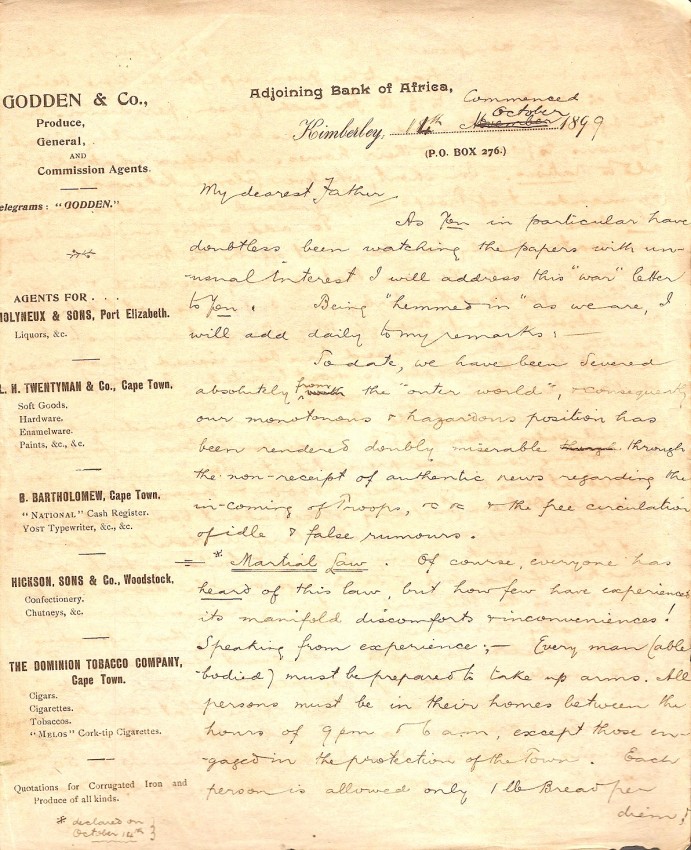 GODDEN & Co.,
Produce,
General,
AND
Commission Agents.
elegrams: "GODDEN."
AGENTS FOR . . .
MOLYNEUX & SONS, Port Elizabeth.
Liquors, &c.
L. H. TWENTYMAN & Co., Cape Town.
Soft Goods.
Hardware.
Enamelware.
Paints, &c., &c.
B. BARTHOLOMEW, Cape Town.
"NATIONAL" Cash Register.
YOST Typewriter, &c., &c.
HICKSON, SONS & Co., Woodstock.
Confectionery.
Chutneys, &c.
THE DOMINION TOBACCO COMPANY,
Cape Town.
Cigars.
Cigarettes.
Tobaccos.
"MELOS" Cork-tip Cigarettes.
Quotations for Corrugated Iron and
Produce of all kinds.
* declared on
October 14th }
Adjoining Bank of Africa,
Commenced
October
Kimberley, 14th November 1899
(P.O. BOX 276.)
My dearest Father,
As You in particular have
doubtless been watching the papers with un-
-usual interest I will address this "war" letter
to You. Being "hemmed in" as we are, I
will add daily to my remarks:—
To date, we have been severed
absolutely from the "outer world", & consequently
our monotonous & hazardous position has
been rendered doubly miserable through
the non-receipt of authentic news regarding the
in-coming of Troops, &c & the free circulation
of idle & false rumours.
* Martial Law. Of course, everyone has
heard of this law, but how few have experienced
its manifold discomforts & inconveniences!
Speaking from experience:— Every man (able
-bodied) must be prepared to take up arms. All
persons must be in their homes between the
hours of 9 pm & 6 a.m, except those en-
-gaged in the protection of the Town. Each
person is allowed only 1 lb Bread per
diem,